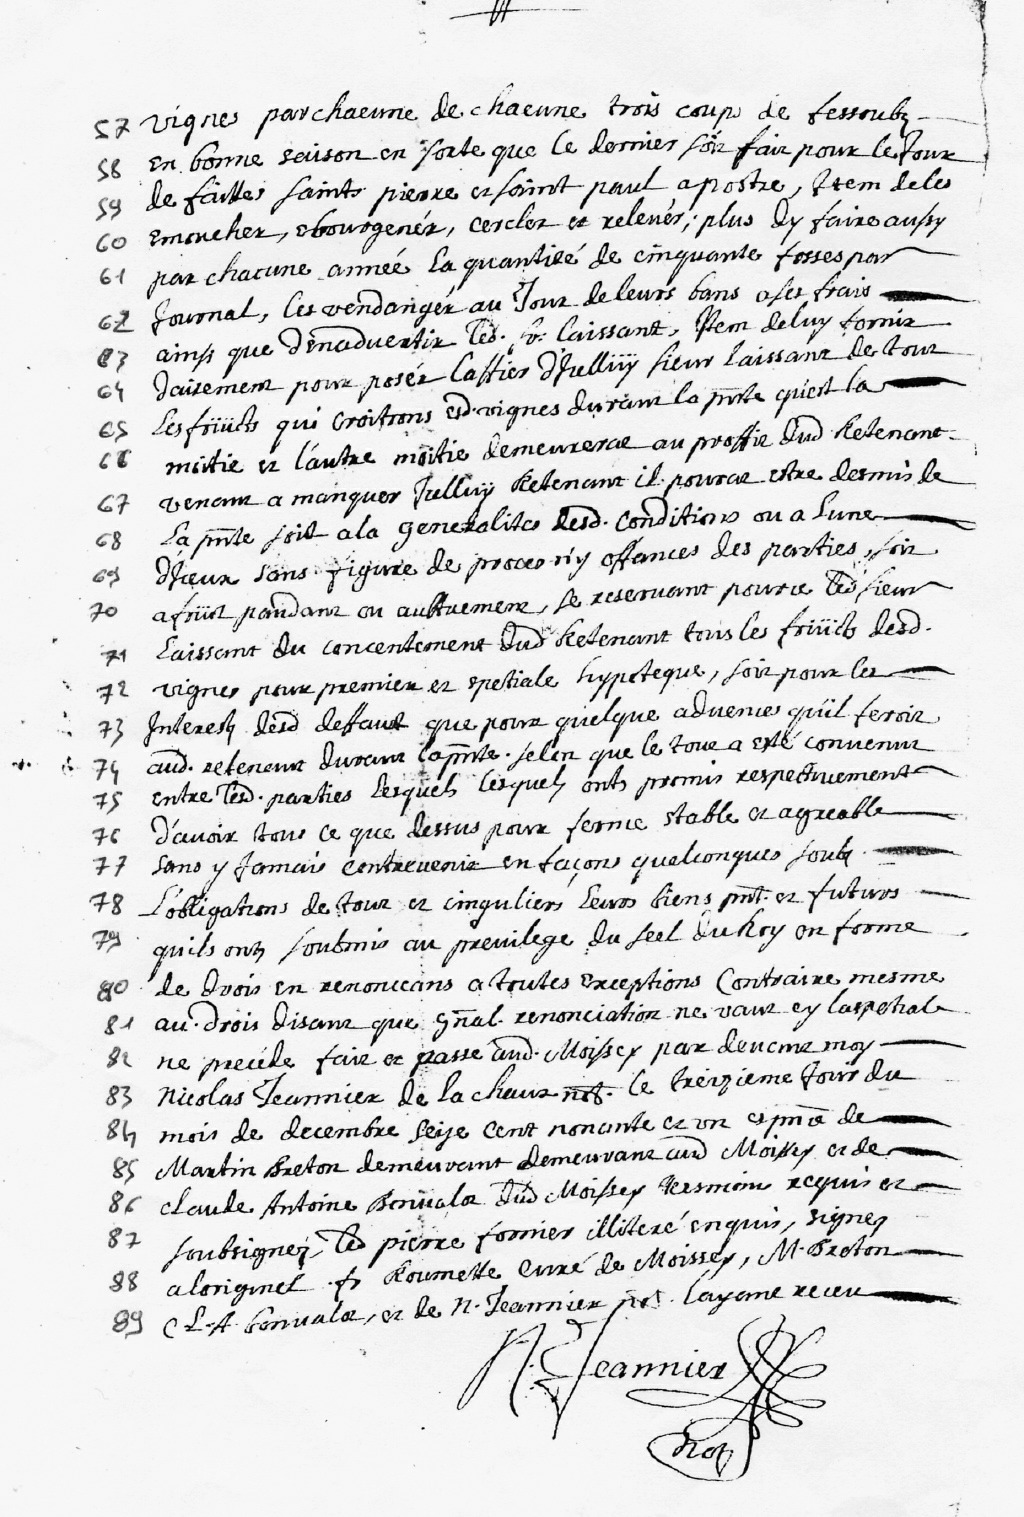 57 vignes par chacune de chacune trois coup de fessoubz
58 en bonne saison en sorte que le dernier soit fait pour le Jour
59 de faittes saints pierre et saint paul apostre, Item de les
60 emoucher, ebourgenér, cercler et relevér; plus dy faire aussy
61 par chacune année la quantité de cinquante fosses par
62 Journal, les vendangér au Jour de leurs bans a ses frais
63 ainsy que d'en advertir led. sr. laissant, Item de luy fornir
64 daisement pour posér d'Icelluy sieur laissant de tout
65 Les friiicts qui croitrons esd. vignes durant la pnte qu'est la
66 moitie et l'autre moitie demeurerat au proffit dud Retenant
67 venant a manquer Icelluy Retenant il pourat estre desmis de
68 La pnte soit a la generalites desd. conditions ou a l'une
69 d'Iceux sans figure de proces n'y offances des parties, soit
70 a friiict pandant ou aultrement, se reservant pource led sieur
71 Laissant du concentement dud Retenant tous les friiicts desd.
72 vignes pour premier et spetiale hypoteque, soit pour les
73 Interestz desd deffaut que pour quelque advenies qu'il feroit
74 aud. retenant durant la pnte. selon que le tout a esté convenut
75 entre lesd. parties lesquels lesquels onts promis respectivement
76 D'avoir tous ce que dessus pour ferme stable et agreable
77 sans y Jamais contrevenir en façons quelconques soubz
78 L'obligations de tout et cinguliers leurs biens pnt. et futurs
79 quils ont soubmis au previlege du seel du Roy en forme
80 de drois en renonccans a toutes exceptions Contraire mesme
81 au. drois disant que gnal. renonciation ne vaut sy la spetiale
82 ne precéde fait et passe aud. Moissey par devant moy
83 Nicolas Jeannier de la chaux not. le treizieme Jour du
84 mois de decembre seize cent nonante et un es pnce de
85 Martin Breton demeurant demeurant aud Moissey et de
86 claude Antoine Bonvalot dud Moissey tesmoins requis et
87 soubsignez, led pierre fornier illiteré enquis, signez
88 a loriginel fr Roumette curé de Moissey, M. Breton
89 C L. A Bonvalot, et de N. Jeannier not. layame receu
N. Jeannier
Not